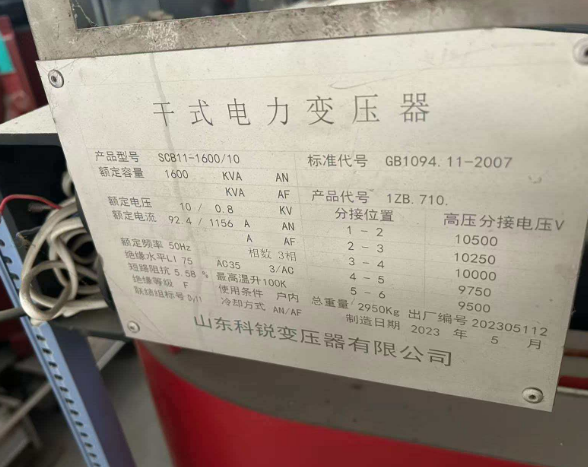 干式电力变压器
产品型号 SCB11-1600/10 标准代号 GB1094.11-2007
额定容量 1600 KVA AN
KVA AF 产品代号 1ZB.710.
额定电压 10 / 0.8 KV 分接位置 高压分接电压V
额定电流 92.4 / 1156 A AN 1 - 2 10500
A AF 2 - 3 10250
额定频率 50Hz 相数 3相 3 - 4 10000
绝缘水平LI 75 AC35 3/AC 4 - 5 9750
短路阻抗 5.58 % 最高温升100K 5 - 6 9500
绝缘等级 F 使用条件 户内 总重量/2950Kg 出厂编号 202305112
联结组标号 Dy11 冷却方式 AN/AF 制造日期 2023 年 5 月
山东科锐变压器有限公司